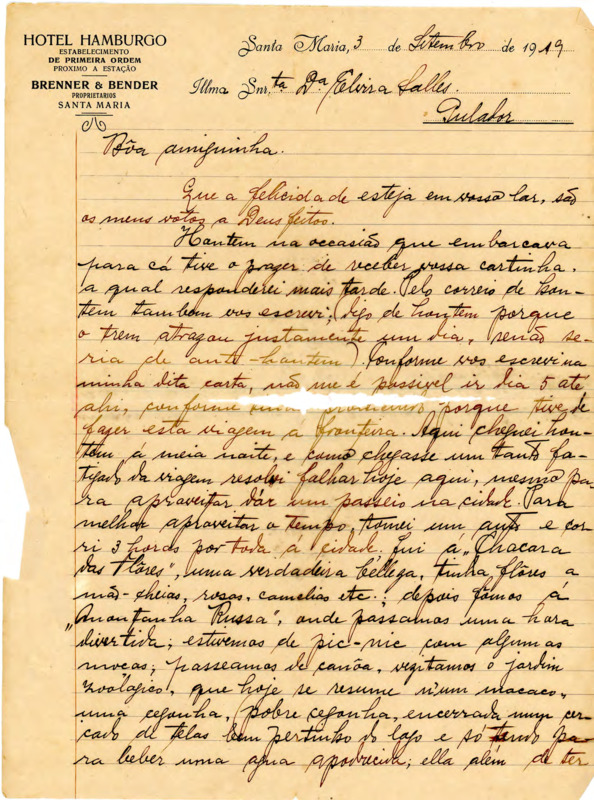 HOTEL HAMBURGO
ESTABELECIMENTO
DE PRIMEIRA ORDEM
PROXIMO A ESTAÇÃO
BRENNER & BENDER
PROPRIETARIOS
SANTA MARIA
Santa Maria, 3 de Setembro de 1919
Illma Snr.ta Dª Elvira Salles.
Pulador
Bôa amiguinha.
Que a felicidade esteja em vosso lar, são
os meus votos a Deus feitos.
Hontem na occasião que embarcava
para cá tive o prazer de receber vossa cartinha,
a qual responderei mais tarde. Pelo correio de hon-
tem tambem vos escrevi; (digo de hontem porque
o trem atrazou justamente um dia, senão se-
ria de ante-hontem). Conforme vos escrevi na
minha dita carta, não me é possivel ir dia 5 até
ahi, conforme porque tive de
fazer esta viagem a fronteira. Aqui cheguei hon-
tem á meia noite, e como chegasse um tanto fa-
tigado da viagem resolvi falhar hoje aqui, mesmo pa-
ra aproveitar dár um passeio na cidade. Para
melhor aproveitar o tempo, tomei um auto e cor-
ri 3 horas por toda á cidade. Fui á „Chacara
das Flôres", uma verdadeira belleza, tinha flôres a
mão-cheias, rosas, camelias etc.; depois fomos á
„Montanha Russa", onde passamos uma hora
divertida; estivemos de pic-nic com algumas
moças; passeamos de canôa, vizitamos o jardim
zoologico, que hoje se resume n'um macaco,
uma cegonha, pobre cegonha, encerrada num cer-
cado de telas bem pertinho do lago e só tendo pa-
ra beber uma agua apodrecida; ella além de ter